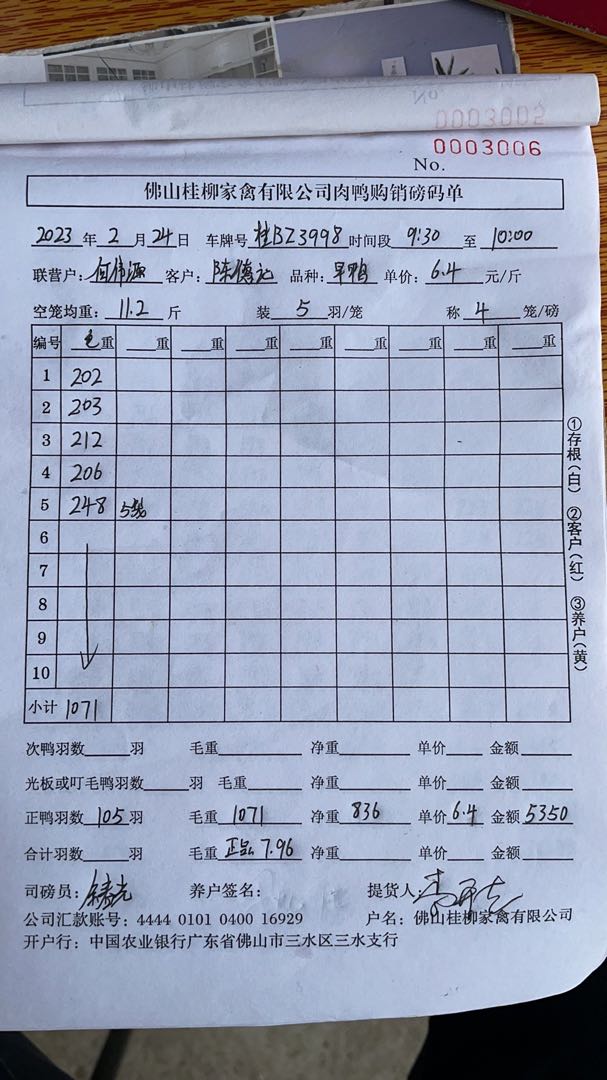 No
0003005
0003006
No.
佛山桂柳家禽有限公司肉鸭购销磅码单
2023年2月24日 车牌号桂BZ3998时间段9:30至10:00
联营户:何伟源 客户:陈德记 品种:旱鸭 单价:6.4元/斤
空笼均重:11.2斤 装5羽/笼 称4笼/磅
编号 毛重 重 重 重 重 重 重 重 重
1 202
2 203
3 212
4 206
5 248 5笼
6
7
8
9
10
小计 1071
①存根(白) ②客户(红) ③养户(黄)
次鸭羽数 羽 毛重 净重 单价 金额
光板或叮毛鸭羽数 羽 毛重 净重 单价 金额
正鸭羽数105羽 毛重1071 净重836 单价6.4 金额5350
合计羽数 羽 毛重正品7.96 净重 单价 金额
司磅员: 养户签名: 提货人:
公司汇款账号: 4444 0101 0400 16929 户名: 佛山桂柳家禽有限公司
开户行: 中国农业银行广东省佛山市三水区三水支行